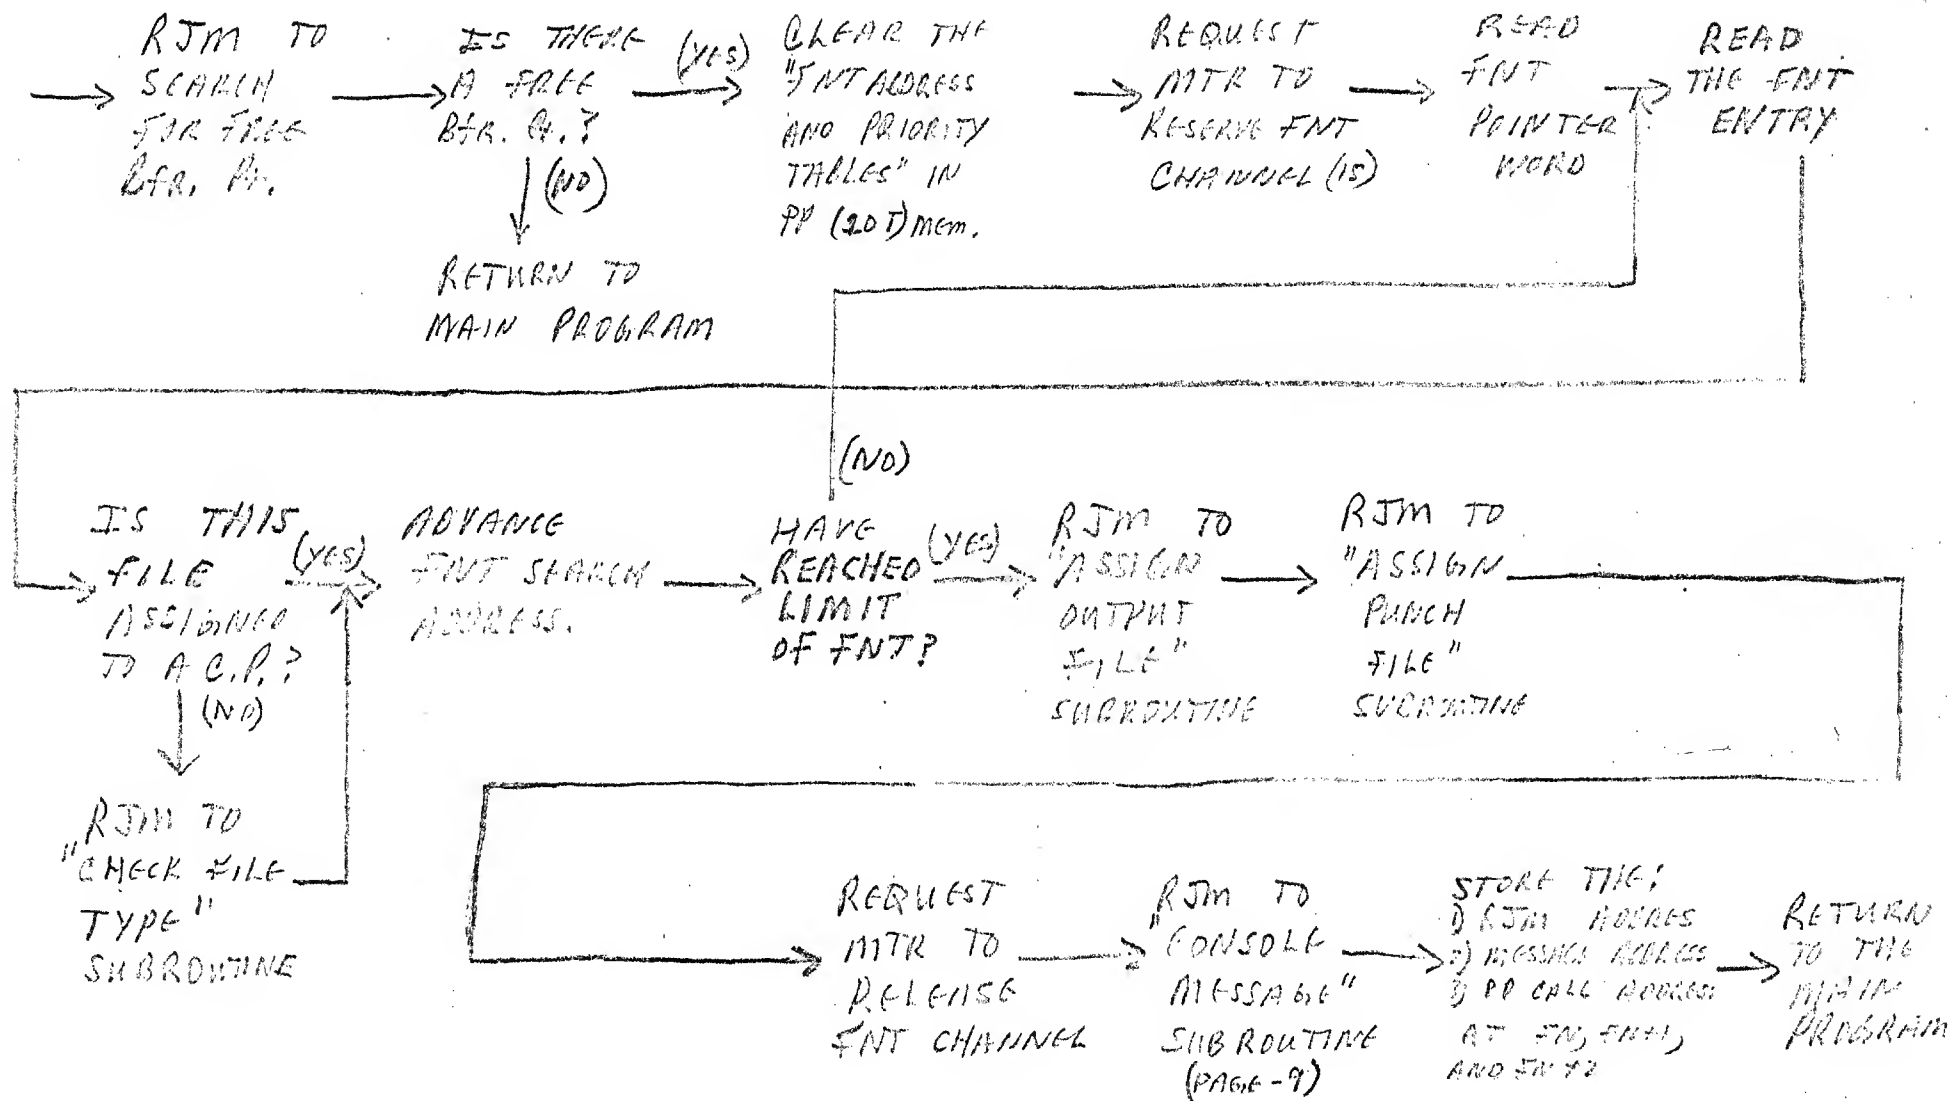 RJM TO
SEARCH
FOR FREE
Bfr. Pt.
IS THERE
A FREE
Bfr. Pt.?
(YES)
(NO)
RETURN TO
MAIN PROGRAM
CLEAR THE
"FNT ADDRESS
AND PRIORITY
TABLES" IN
PP (20T) mem.
REQUEST
MTR TO
RESERVE FNT
CHANNEL (15)
READ
FNT
POINTER
WORD
READ
THE FNT
ENTRY
IS THIS
FILE
ASSIGNED
TO A C.P.?
(YES)
(NO)
RJM TO
"CHECK FILE
TYPE"
SUBROUTINE
ADVANCE
FNT SEARCH
ADDRESS.
(NO)
HAVE
REACHED
LIMIT
OF FNT?
(YES)
RJM TO
"ASSIGN
OUTPUT
FILE"
SUBROUTINE
RJM TO
"ASSIGN
PUNCH
FILE"
SUBROUTINE
REQUEST
MTR TO
RELEASE
FNT CHANNEL
RJM TO
"CONSOLE
MESSAGE"
SUBROUTINE
(PAGE-9)
STORE THE:
1) RJM ADDRES
2) MESSAGE ADDRESS
3) PP CALL ADDRESS
AT FN, FN+1,
AND FN+2
RETURN
TO THE
MAIN
PROGRAM